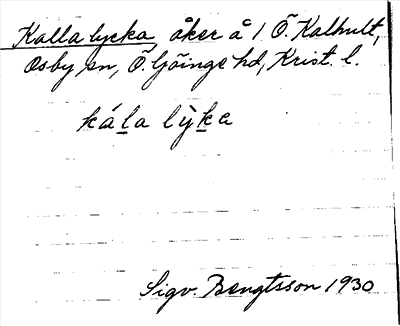 Kalla lycka åker å 1 Ö. Kalhult,
Osby sn, Ö. Göinge hd, Krist. l.
ká̱la lỳḵa
Sigv. Bengtsson 1930